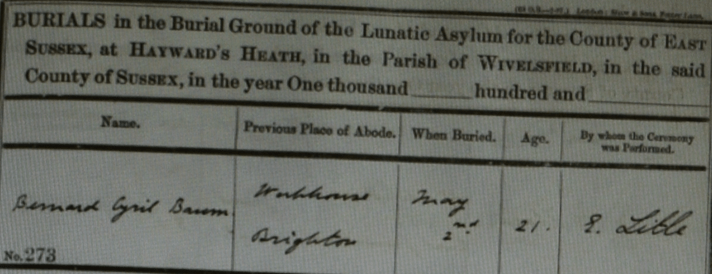 BURIALS in the Burial Ground of the Lunatic Asylum for the County of EAST
SUSSEX, at HAYWARD'S HEATH, in the Parish of WIVELSFIELD, in the said
County of SUSSEX, in the year One thousand ______ hundred and ______
Name. Previous Place of Abode. When Buried. Age. By whom the Ceremony
was Performed.
Bernard Cyril Workhouse May 21. E.
Brighton 2nd
No. 273